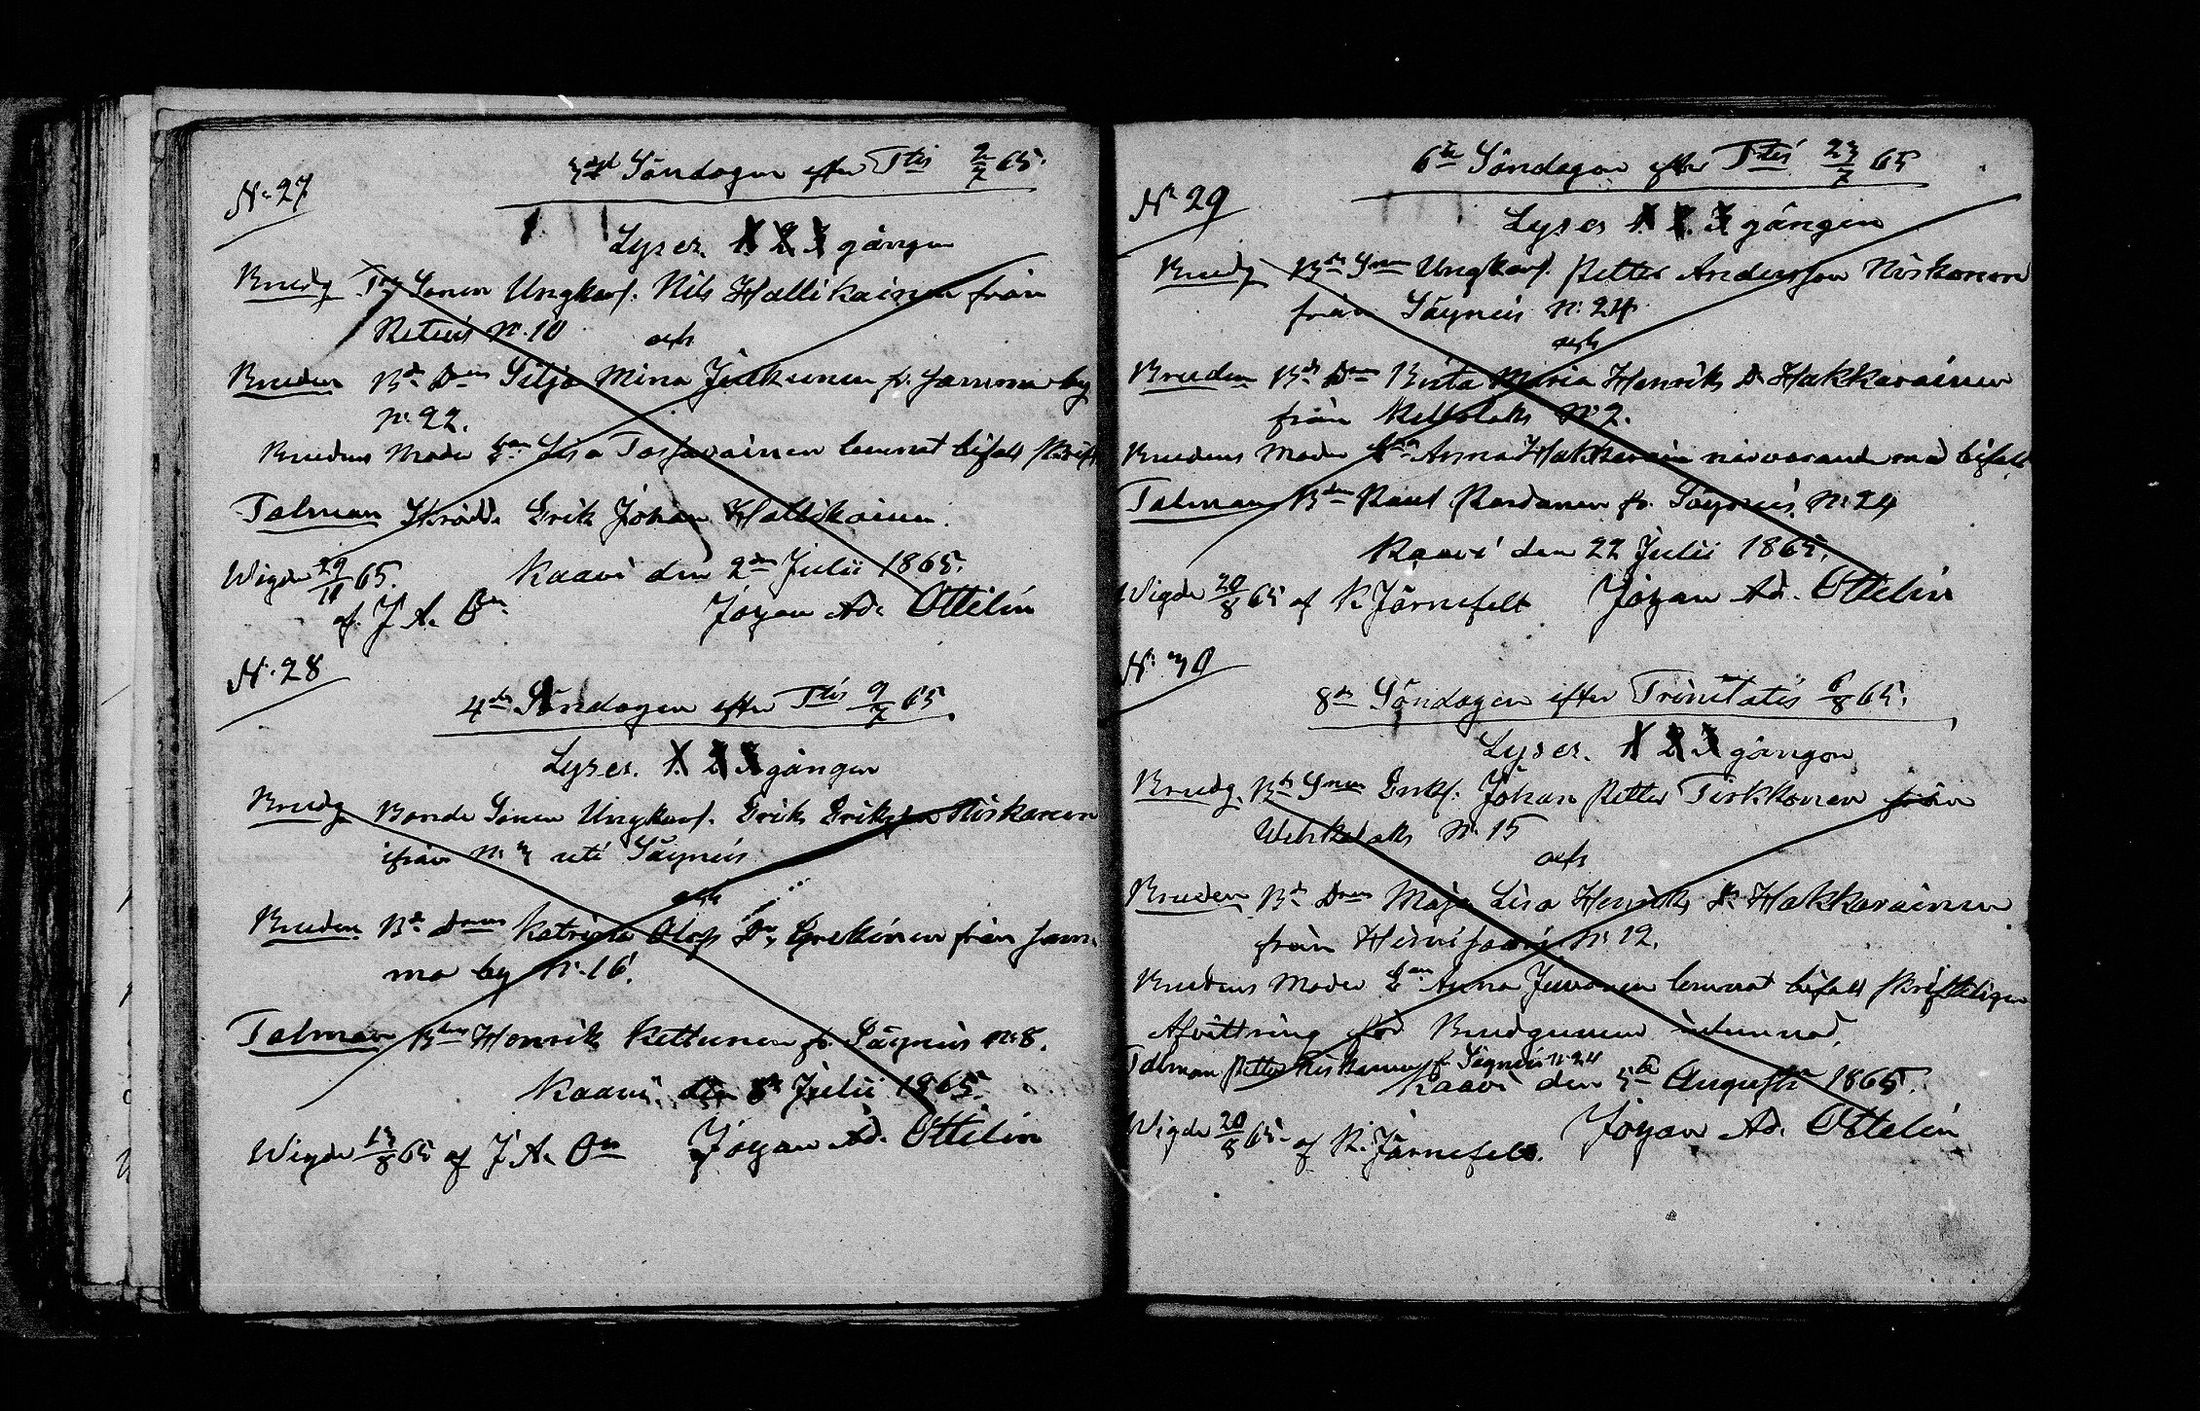 N: 27
3dje Söndagen efter Ttis 2/7 65.
Lyses. 1. 2. 3 gången
Brudg Sonen Ungkarl. Nils Hallikainen från
Retuis N:10
och
Bruden Bde Dren Silja Mina Juskunen fr. Jamma by
N: 22.
Brudens Moder Lisa Tossavainen lemnat bifall skrift
Talman Skrädd. Erik Johan Hallikainen.
Kaavi den 2dra Julii 1865.
Wigde 29/11 65.
af J. A. On
Johan Ad. Ottelin
N: 28
4de Söndagen efter Ttis 9/7 65.
Lyses. 1. 2. 3 gången
Brudg Bonde Sonen Ungkarl. Erik Eriksson Niskanen
ifrån N: 3 uti Säyneis
och
Bruden Bde Dren Katrina Olofs Dr från Jam-
ma by N: 16.
Talman Bden Henrik Kettunen fr. Säyneis N: 8.
Kaavi den 8de Julii 1865.
Wigde 13/8 65 af J. A. On
Johan Ad. Ottelin
N: 29
6te Söndagen efter Ttis 23/7 65
Lyses 1. 2. 3 gången
Brudg Bde Sonen Ungkarl. Petter Andersson Niskanen
från Säyneis N: 24
och
Bruden Bde Dren Brita Maria Henriks Dr Hakkarainen
från N: 2.
Brudens Moder Anna Hakkarain närvarande med bifall
Talman Bden Paul Pardanen fr. Säyneis N: 24
Kaavi den 22 Julii 1865.
Wigde 20/8 65 af K. Järnefelt
Johan Ad. Ottelin
N: 30
8de Söndagen efter Trinitatis 6/8 65.
Lyses. 1 2 3 gången
Brudg. Bde Sonen Enkl. Johan Petter Tirkkonen från
Wehkalaks N: 15
och
Bruden Bde Dren Maja Lisa Henriks Dr Hakkarainen
från N: 12.
Brudens Moder Anna Juvonen lemnat bifall skriftligen
Afvittring för Brudgummen inlemnad.
Talman Petter Niskanen f. Säyneis N: 24
Kaavi den 5te Augusti 1865.
Wigde 20/8 65. af K. Järnefelt.
Johan Ad. Ottelin